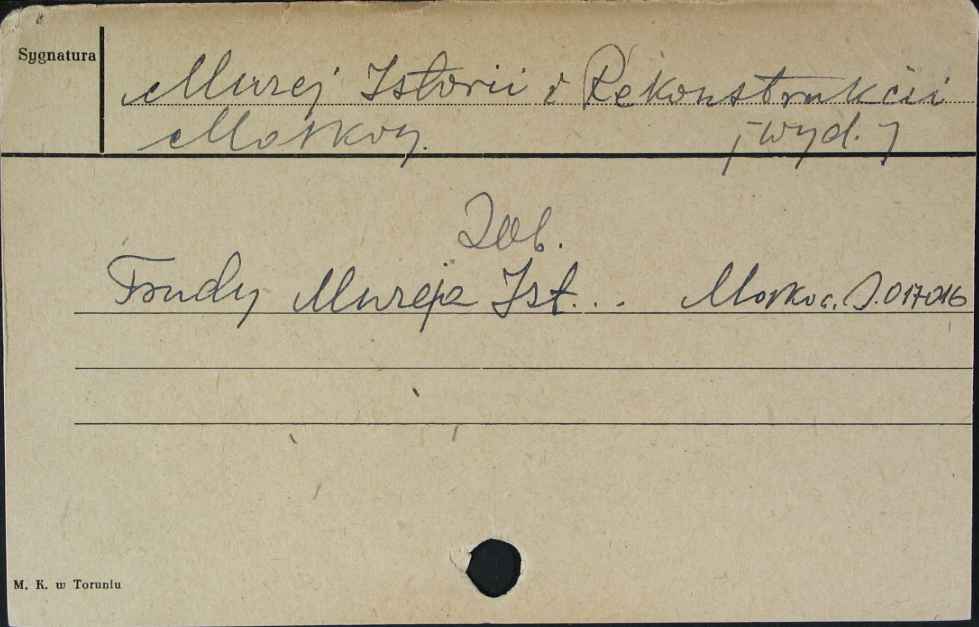 Sygnatura
Muzej Istorii i Rekonstrukcii
Moskvy. /wyd./
Zob.
Trudy Muzeja Ist... Moskva. S.017016
M. K. w Toruniu